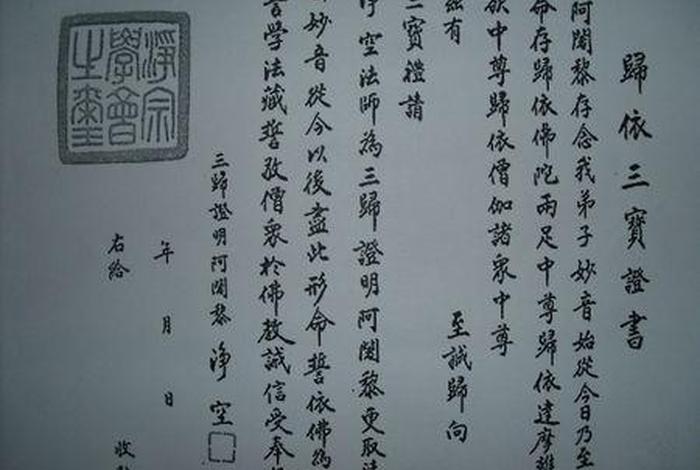 歸依三寶證書
阿闍黎存念我弟子妙音始從今日乃至
命存歸依佛陀兩足中尊歸依達摩離
欲中尊歸依僧伽諸眾中尊
茲有
至誠歸向
三寶禮請
淨空法師為三歸證明阿闍黎更取法
妙音從今以後盡此形命誓依佛為
言學法藏誓敬僧眾於佛教誠信受奉
三歸證明阿闍黎 淨空
年 月 日
右給
收
淨宗學會之璽